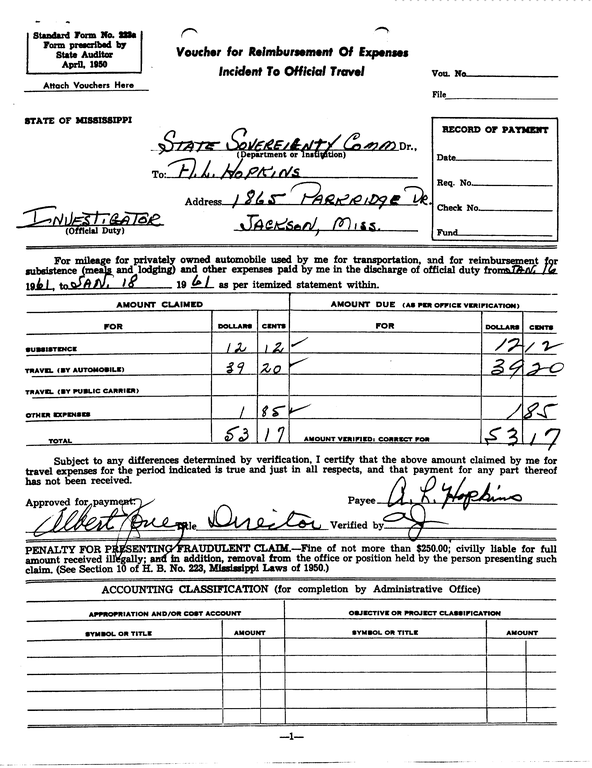 Standard Form No. 223a
Form prescribed by
State Auditor
April, 1950
Attach Vouchers Here
Voucher for Reimbursement Of Expenses
Incident To Official Travel
Vou. No.
File
STATE OF MISSISSIPPI
STATE SOVEREIGNTY COMM Dr.,
(Department or Institution)
To: A. L. HOPKINS
Address 1865 PARKRIDGE DR.
INVESTIGATOR JACKSON, MISS.
(Official Duty)
RECORD OF PAYMENT
Date
Req. No.
Check No.
Fund
For mileage for privately owned automobile used by me for transportation, and for reimbursement for
subsistence (meals and lodging) and other expenses paid by me in the discharge of official duty from JAN. 16
1961, to JAN. 18 1961 as per itemized statement within.
AMOUNT CLAIMED AMOUNT DUE (AS PER OFFICE VERIFICATION)
FOR DOLLARS CENTS FOR DOLLARS CENTS
SUBSISTENCE 12 12 ✓ 12 12
TRAVEL (BY AUTOMOBILE) 39 20 ✓ 39 20
TRAVEL (BY PUBLIC CARRIER)
OTHER EXPENSES 1 85 ✓ 1 85
TOTAL 53 17 AMOUNT VERIFIED: CORRECT FOR 53 17
Subject to any differences determined by verification, I certify that the above amount claimed by me for
travel expenses for the period indicated is true and just in all respects, and that payment for any part thereof
has not been received.
Approved for payment: Payee A. L. Hopkins
Albert Jones Title Director Verified by
PENALTY FOR PRESENTING FRAUDULENT CLAIM.—Fine of not more than $250.00; civilly liable for full
amount received illegally; and in addition, removal from the office or position held by the person presenting such
claim. (See Section 10 of H. B. No. 223, Mississippi Laws of 1950.)
ACCOUNTING CLASSIFICATION (for completion by Administrative Office)
APPROPRIATION AND/OR COST ACCOUNT OBJECTIVE OR PROJECT CLASSIFICATION
SYMBOL OR TITLE AMOUNT SYMBOL OR TITLE AMOUNT
—1—